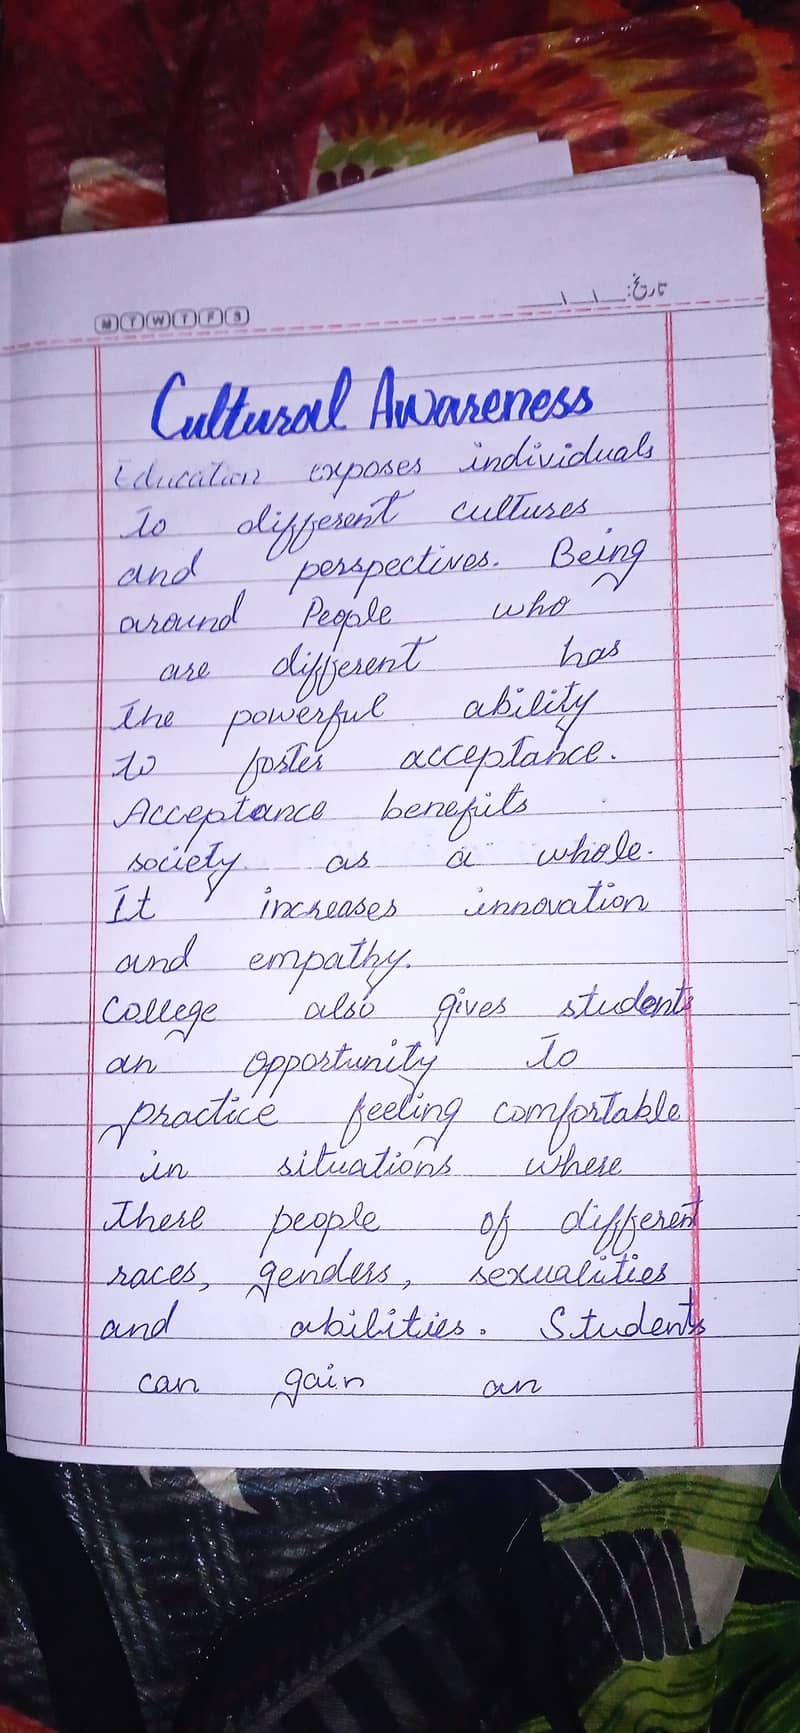 M T W T F S
تاریخ: __\__\__
Cultural Awareness
Education exposes individuals
to different cultures
and perspectives. Being
around People who
are different has
the powerful ability
to foster acceptance.
Acceptance benefits
society as a whole.
It increases innovation
and empathy.
College also gives students
an opportunity to
practice feeling comfortable
in situations where
there people of different
races, genders, sexualities
and abilities. Students
can gain an